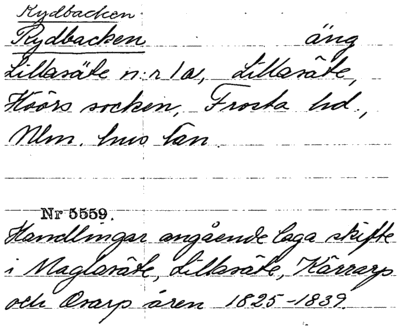 Rydbacken
Rydbacken äng
Lillasäte n:r 1a, Lillasäte,
Höörs socken, Frosta hd.,
Mlm. hus län.
Nr 5559.
Handlingar angående laga skifte
i Maglasäte, Lillasäte, Kärrarp
och Orarp åren 1825-1839.